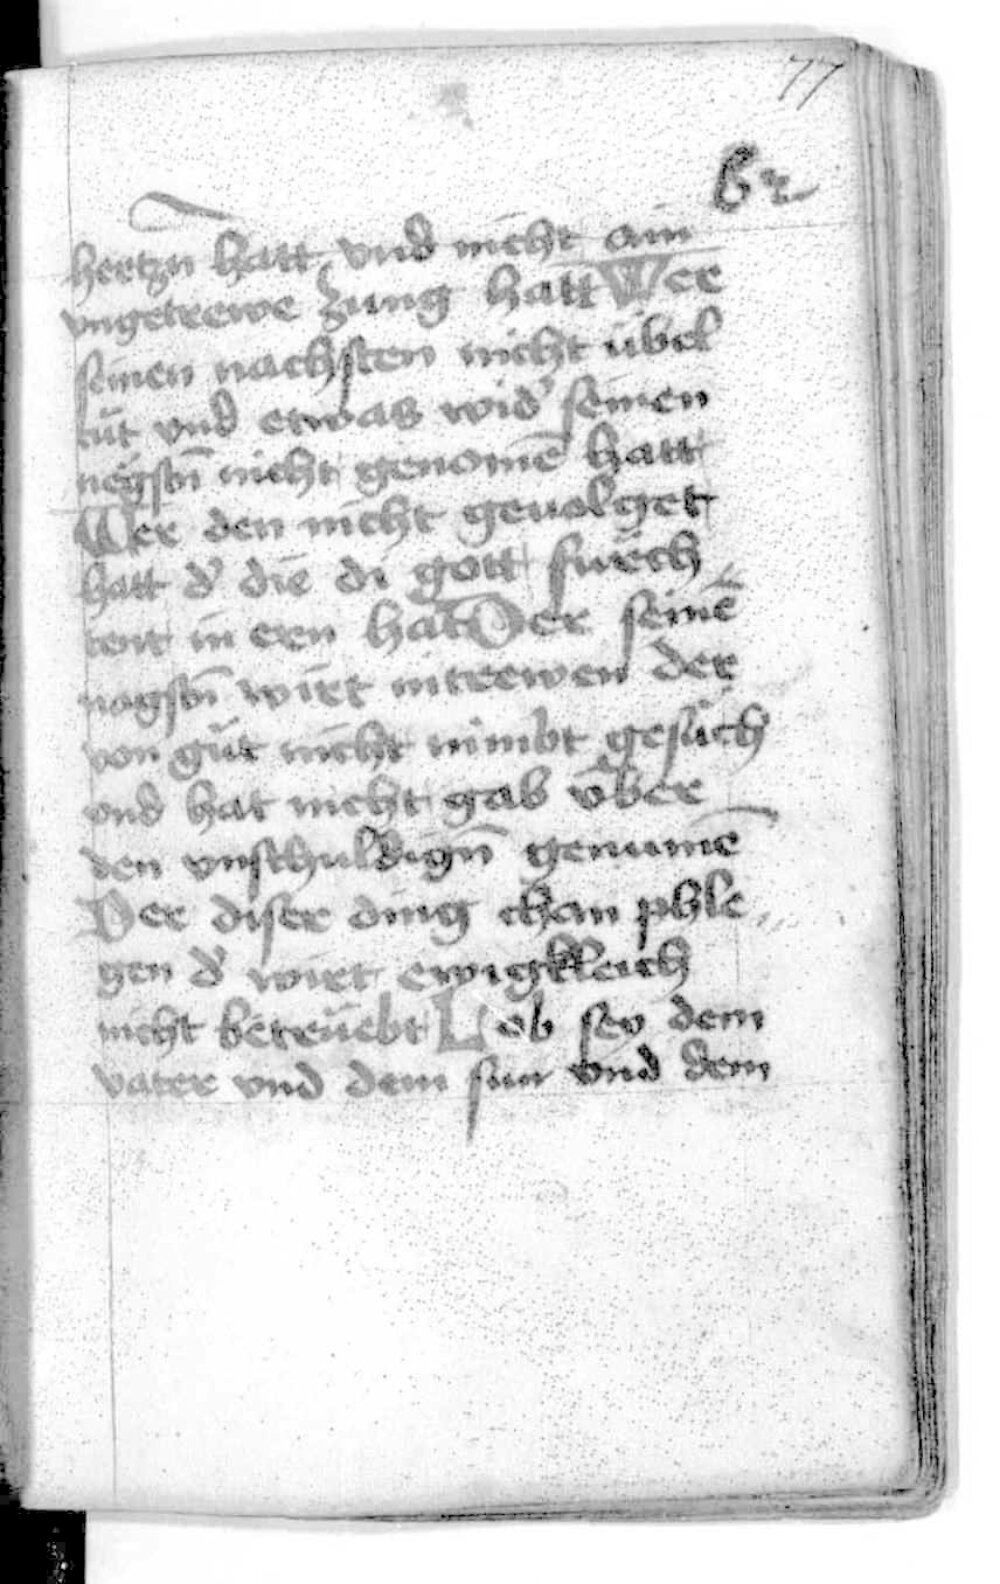 77
hertzn hatt vnd nicht ain
vngetrewe zung hatt Wer
seinen nachsten nicht übel
tüt vnd etwas wid' seinen
negstn̄ nicht genomē hatt
Wer den nicht geuolget
hatt d' die di gott furch
tent in eren hat Der seinē
nagstn̄ wirt intrewen der
von güt nicht nimbt gesüch
vnd hat nicht gab v̄ber
den vnschuldign̄ genumē
Der diser ding chan phle
gen d' wirt ewigkleich
nicht betrüebt Lob sey dem
vater vnd dem sun vnd dem